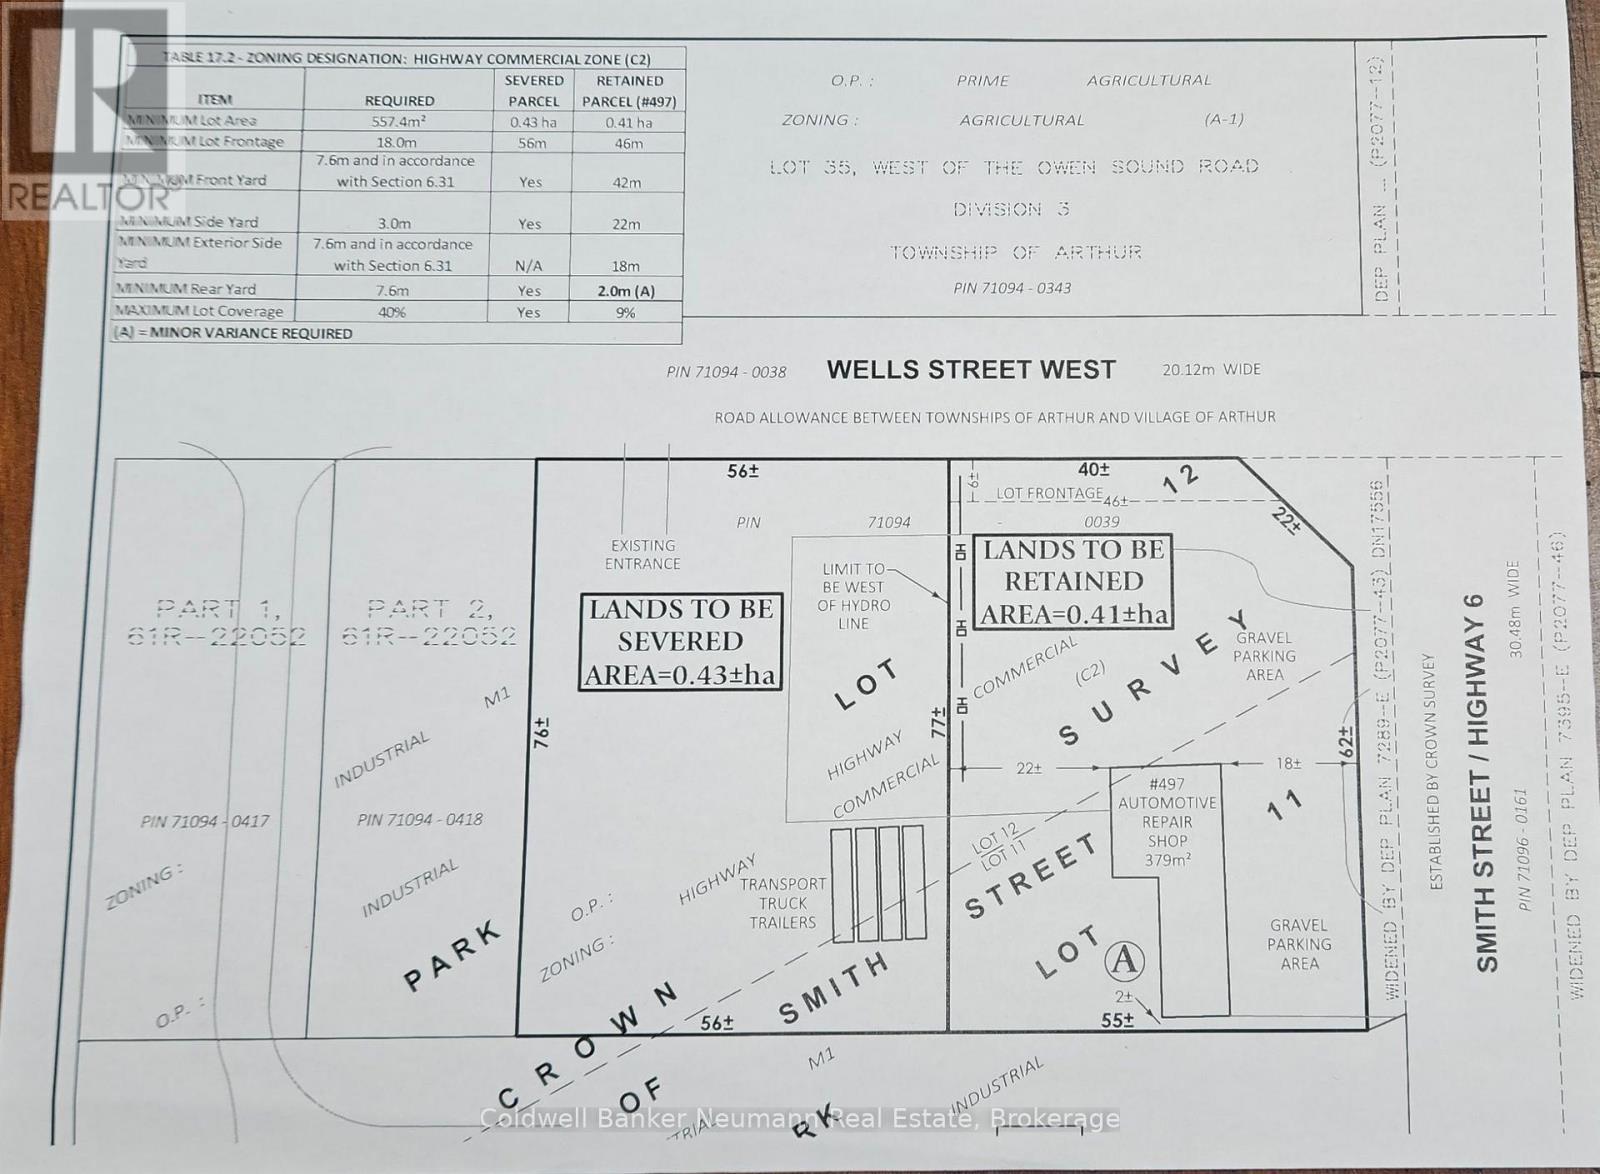 REALTOR
TABLE 17.2 - ZONING DESIGNATION: HIGHWAY COMMERCIAL ZONE (C2)
ITEM REQUIRED SEVERED PARCEL RETAINED PARCEL (#497)
MINIMUM Lot Area 557.4m² 0.43 ha 0.41 ha
MINIMUM Lot Frontage 18.0m 56m 46m
MINIMUM Front Yard 7.6m and in accordance with Section 6.31 Yes 42m
MINIMUM Side Yard 3.0m Yes 22m
MINIMUM Exterior Side Yard 7.6m and in accordance with Section 6.31 N/A 18m
MINIMUM Rear Yard 7.6m Yes 2.0m (A)
MAXIMUM Lot Coverage 40% Yes 9%
(A) = MINOR VARIANCE REQUIRED
O.P. : PRIME AGRICULTURAL
ZONING : AGRICULTURAL (A-1)
LOT 35, WEST OF THE OWEN SOUND ROAD
DIVISION 3
TOWNSHIP OF ARTHUR
PIN 71094 - 0343
DEP PLAN -- (P2077--12)
PIN 71094 - 0038 WELLS STREET WEST 20.12m WIDE
ROAD ALLOWANCE BETWEEN TOWNSHIPS OF ARTHUR AND VILLAGE OF ARTHUR
56±
6±
40±
LOT FRONTAGE 46±
12
22±
PIN 71094 - 0039
EXISTING
ENTRANCE
LIMIT TO
BE WEST
OF HYDRO
LINE
LANDS TO BE
SEVERED
AREA=0.43±ha
LANDS TO BE
RETAINED
AREA=0.41±ha
HO
HO
HO
PART 1,
61R--22052
PART 2,
61R--22052
M1
INDUSTRIAL
PIN 71094 - 0417
PIN 71094 - 0418
ZONING :
INDUSTRIAL
O.P. :
76±
77±
62±
LOT
HIGHWAY
COMMERCIAL
COMMERCIAL
(C2)
SURVEY
GRAVEL
PARKING
AREA
22±
18±
#497
AUTOMOTIVE
REPAIR
SHOP
379m²
11
LOT 12
LOT 11
HIGHWAY
O.P. :
ZONING :
TRANSPORT
TRUCK
TRAILERS
STREET
LOT
A
2±
GRAVEL
PARKING
AREA
PARK
CROWN
SMITH
56±
55±
OF
M1
INDUSTRIAL
TRIAL
RK
WIDENED BY DEP PLAN 7289--E (P2077--43) DN17556
ESTABLISHED BY CROWN SURVEY
SMITH STREET / HIGHWAY 6
30.48m WIDE
PIN 71096 - 0161
WIDENED BY DEP PLAN 7395--E (P2077--46)
Coldwell Banker Neumann Real Estate, Brokerage